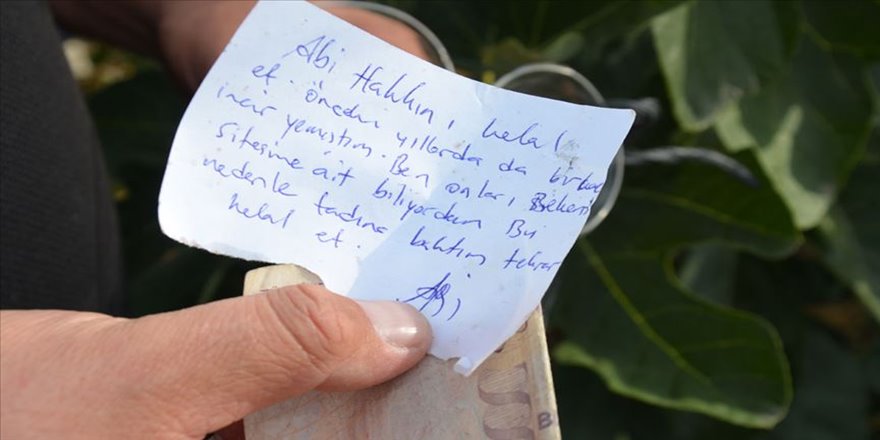 Abi Hakkını helal
et. önceki yıllarda da birkaç
incir yemiştim. Ben onları Şekerci
sitesine ait biliyordum Bu
nedenle tadına baktım tekrar
helal et.